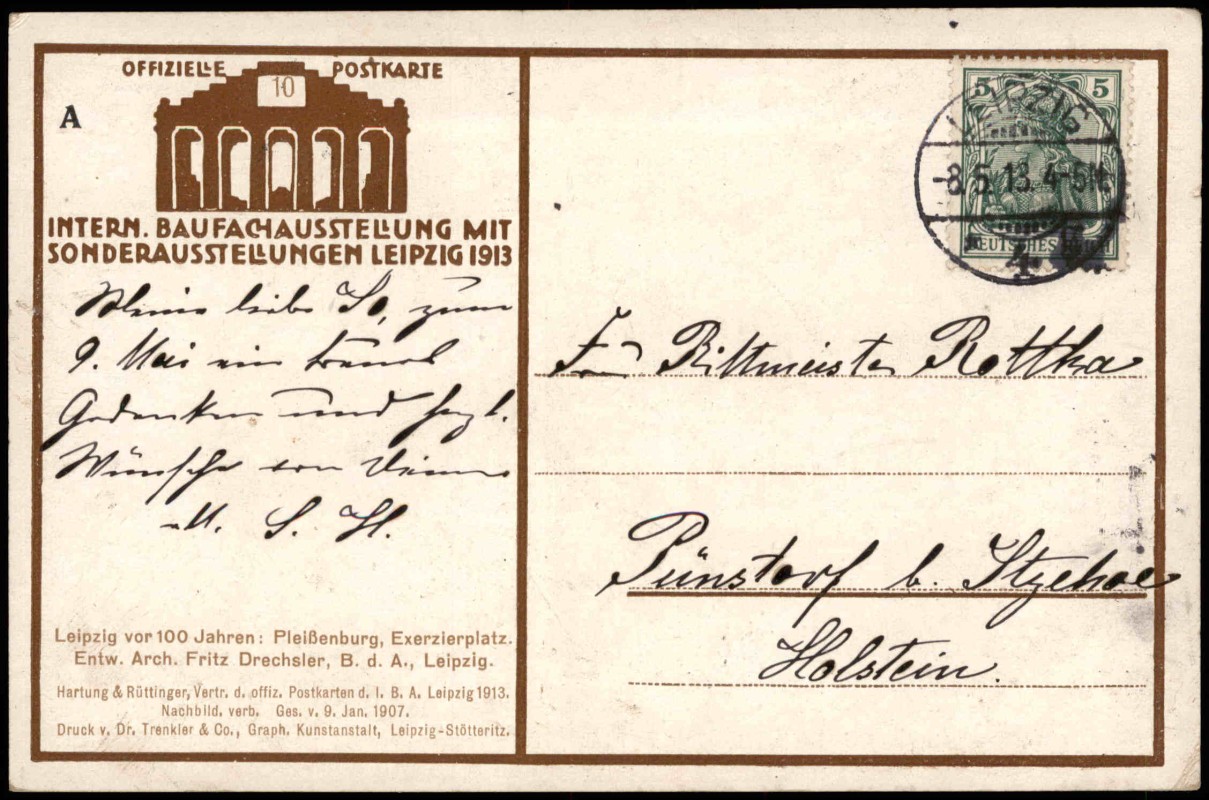 OFFIZIELLE POSTKARTE
10
A
INTERN. BAUFACHAUSSTELLUNG MIT
SONDERAUSSTELLUNGEN LEIPZIG 1913
Meine liebe So, zum
9. Mai ein treues
Gedenken und herzl.
Wünsche von Deiner
M. S. H.
Leipzig vor 100 Jahren: Pleißenburg, Exerzierplatz.
Entw. Arch. Fritz Drechsler, B. d. A., Leipzig.
Hartung & Rüttinger, Vertr. d. offiz. Postkarten d. I. B. A. Leipzig 1913.
Nachbild. verb. Ges. v. 9. Jan. 1907.
Druck v. Dr. Trenkler & Co., Graph. Kunstanstalt, Leipzig-Stötteritz.
5 5
DEUTSCHES REICH
LEIPZIG
-8.5.13. 4-5N.
4
Rittmeister Rottka
Pünstorf b. Itzehoe
Holstein.